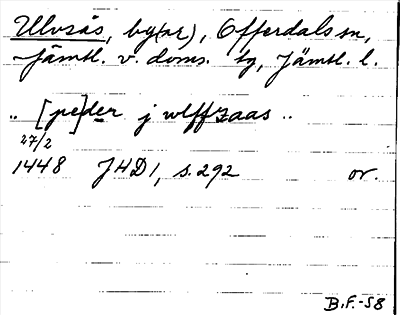 Ulvsås, by(ar), Offerdals sn,
Jämtl. v. doms. tg, Jämtl. l.
.. [pe]der j wlffzaas ..
27/2
1448 JHD 1, s. 292 or.
B.F.-58